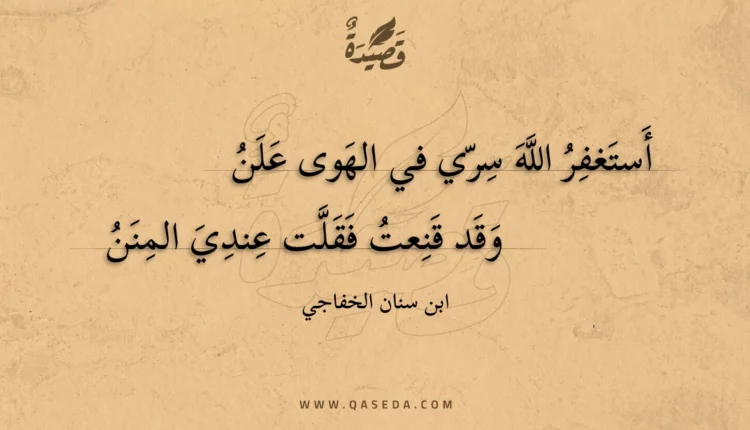 قَصِيْدَةٌ
أَستَغفِرُ اللَّهَ سِرّي في الهَوى عَلَنُ
وَقَد قَنِعتُ فَقَلَّت عِندِيَ المِنَنُ
ابن سنان الخفاجي
WWW.QASEDA.COM